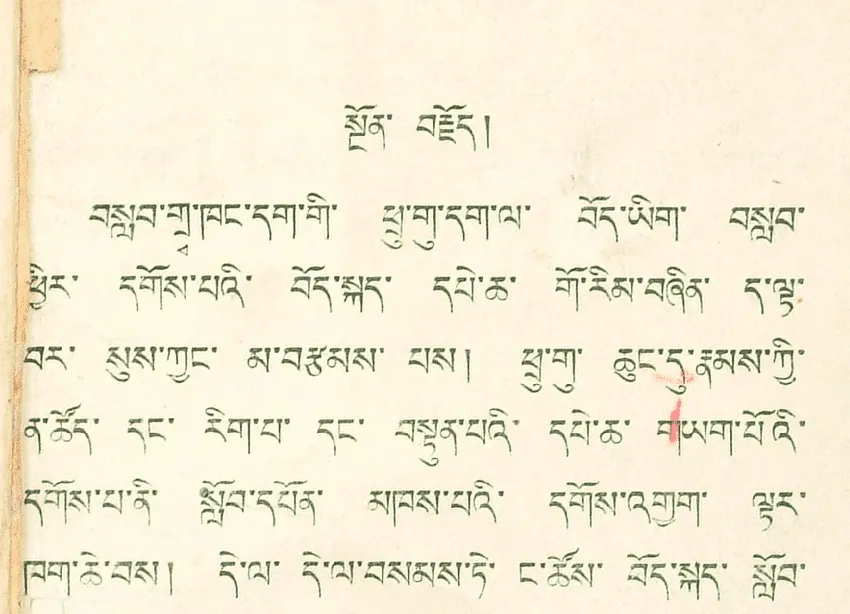 སྔོན་ བརྗོད།
བསླབ་གྲྭ་ཁང་དག་གི་ ཕྲུ་གུ་དག་ལ་ བོད་ཡིག་ བསླབ་
ཕྱིར་ དགོས་པའི་ བོད་སྐད་ དཔེ་ཆ་ གོ་རིམ་བཞིན་ ད་ལྟ་
བར་ སུས་ཀྱང་ མ་བརྩམས་ པས། ཕྲུ་གུ་ ཆུང་དུ་རྣམས་ཀྱི་
ན་ཚོད་ དང་ རིག་པ་ དང་ བསྟུན་པའི་ དཔེ་ཆ་ གཡག་པོ་འི་
དགོས་པ་ནི་ སློབ་དཔོན་ མཁས་པའི་ དགོས་འགྱུག་ ལྟར་
ཁག་ཆེ་བས། དེ་ལ་ དེ་ལ་བསམས་ཏེ་ ང་ཚོས་ བོད་སྐད་ སློབ་